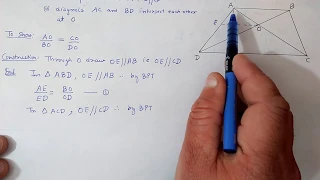 If diagonals AC and BD intersect each other
at O
To Show: AO/BO = CO/DO
Construction: Through O draw OE//AB is OE//CD
In ΔABD, OE//AB ∴ by BPT
AE/ED = BO/OD — ①
In ΔACD, OE//CD ∴ by BPT
A
B
E
O
D
C